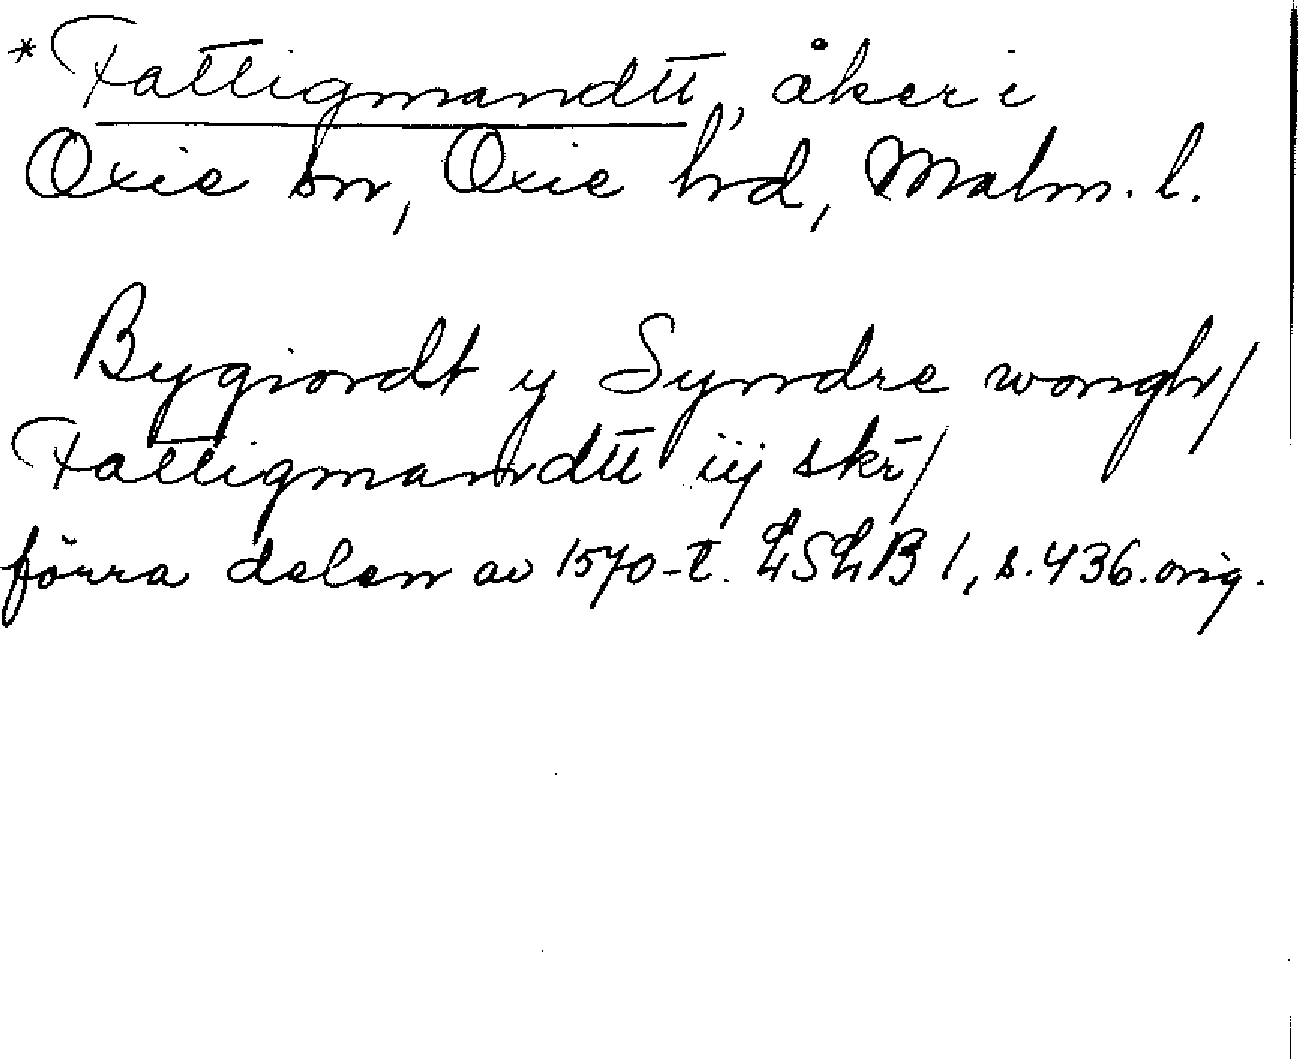 *Fattigmandtt, åker i
Oxie sn, Oxie hd, Malm. l.
Bygiordt y Syndre wongh/
Fattigmandtt iij skr/
förra delen av 1570-t. LSLB 1, s. 436. orig.